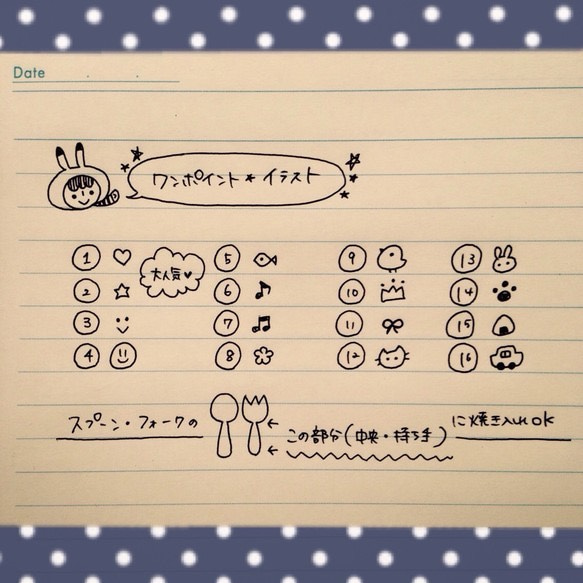 Date
ワンポイント★イラスト
① ⑤ ⑨ ⑬
大人気♥
② ⑥ ⑩ ⑭
③ ⑦ ⑪ ⑮
④ ⑧ ⑫ ⑯
スプーン・フォークの この部分(中央・持ち手)に焼き入れOK